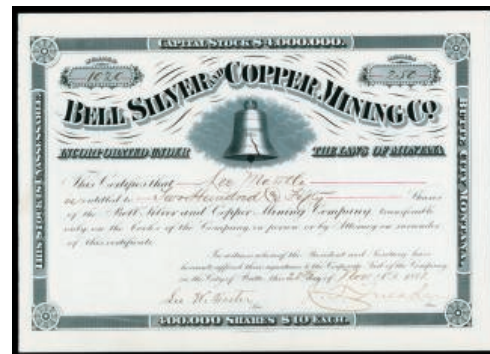 CAPITAL STOCK $4,000,000.
NUMBER
1020
SHARES
250
BELL SILVER AND COPPER MINING CO.
INCORPORATED UNDER THE LAWS OF MONTANA
THIS STOCK IS UNASSESSABLE
BUTTE CITY MONTANA.
This Certifies that Lee Mantle
is entitled to Two Hundred & Fifty Shares
of the Bell Silver and Copper Mining Company transferable
only on the Books of the Company in person or by Attorney on surrender
of this certificate.
In witness whereof the President and Secretary have
hereunto affixed their signatures & the Corporate Seal of the Company
in the City of Butte this day of Nov
400,000 SHARES $10 EACH.